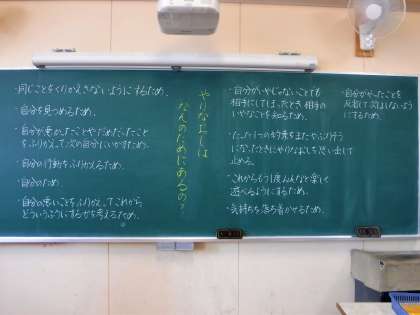 ・同じことをくりかえさないようにするため。
・自分を見つめるため。
・自分が悪かったことやだめだったこと
をふりかえって次の自分にいかすため。
・自分の行動をふりかえるため。
・自分のため。
・自分の悪いことをふりかえってこれから
どういうふうにするかを考えるため。
やりなおしは
なんのためにあるの?
・自分がいやじゃないことでも
相手にしてしまったとき相手の
いやなことを知るため。
・たった1つの約束をまたやぶりそう
になったときにやりなおしを思い出して
止める。
・これからもう1度みんなと楽しく
遊べるようにするため。
・気持ちを落ち着かせるため。
・自分がやったことを
反省して次はしないよう
にするため。